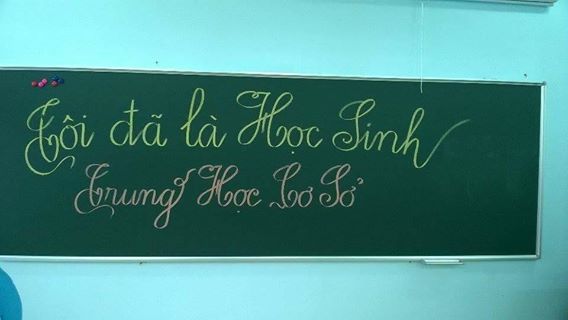 Tôi đã là Học Sinh
Trung Học Cơ Sở